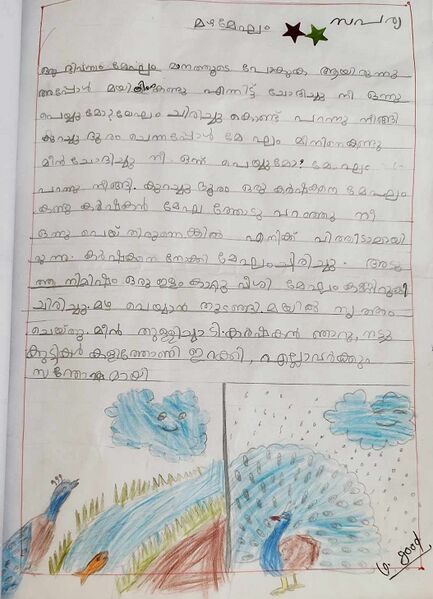 മഴമേഘം സപര്യ
ഒരു ദിവസം മേഘം മാനത്തൂടെ പോകുക ആയിരുന്നു
അപ്പോൾ മയിലിനെ കണ്ടു എന്നിട്ട് ചോദിച്ചു നീ ഒന്നു
പെയ്യുമോ മേഘം ചിരിച്ചു കൊണ്ട് പറന്നു നീങ്ങി
കുറച്ചു ദൂരം ചെന്നപ്പോൾ മേഘം മീനിനെ കണ്ടു
മീൻ ചോദിച്ചു നീ ഒന്ന് പെയ്യുമോ? മേഘം
പറന്നു നീങ്ങി. കുറച്ചു ദൂരം ഒരു കർഷകനെ മേഘം
കണ്ടു കർഷകൻ മേഘത്തോടു പറഞ്ഞു നീ
ഒന്നു പെയ്തിരുന്നെങ്കിൽ എനിക്ക് വിത്തിടാമായി
രുന്നു. കർഷകനെ നോക്കി മേഘം ചിരിച്ചു. അടു
ത്ത നിമിഷം ഒരു ഇളം കാറ്റു വീശി മേഘം കണ്ണിറുക്കി
ചിരിച്ചു. മഴ പെയ്യാൻ തുടങ്ങി. മയിൽ നൃത്തം
ചെയ്തു. മീൻ തുള്ളിച്ചാടി. കർഷകൻ ഞാറു നട്ടു
കുട്ടികൾ കളിത്തോണി ഇറക്കി, എല്ലാവർക്കും
സന്തോഷമായി
v. good